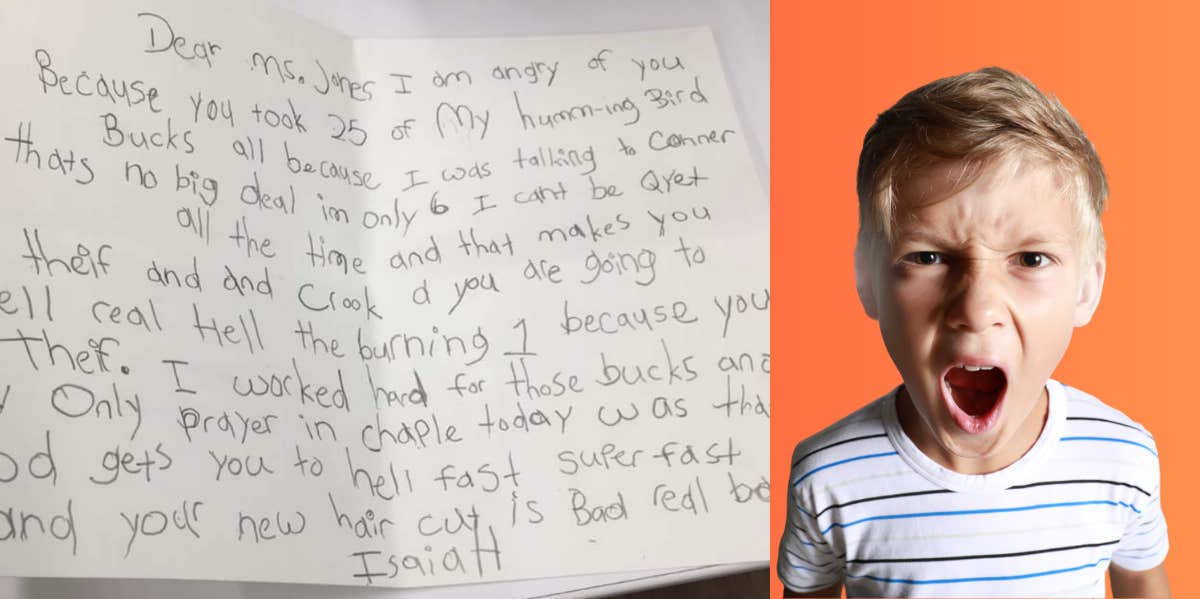 Dear Ms. Jones I am angry of you
Because you took 25 of My humm-ing Bird
Bucks all because I was talking to Conner
thats no big deal im only 6 I cant be Qyet
all the time and that makes you
theif and and Crook d you are going to
ell real Hell the burning 1 because you
Theif. I worked hard for those bucks and
Only prayer in chaple today was tha
od gets you to hell fast super fast
and your new hair cut is Bad real ba
IsaiaH